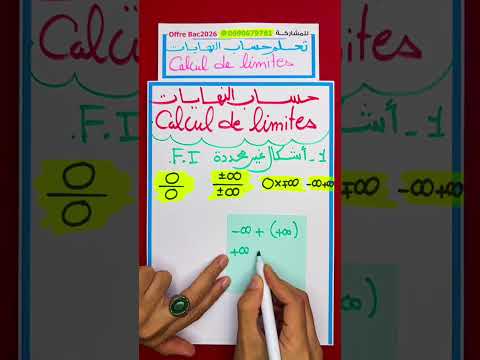 Offre Bac2026 @0690679781 للمشاركة
تعلم حساب النهايات
Calcul de limites
حساب النهايات
Calcul de limites
1 - أشكال غير محددة F.I.
0/0 ±∞/±∞ 0×∓∞ -∞+∞
-∞ + (+∞)
+∞